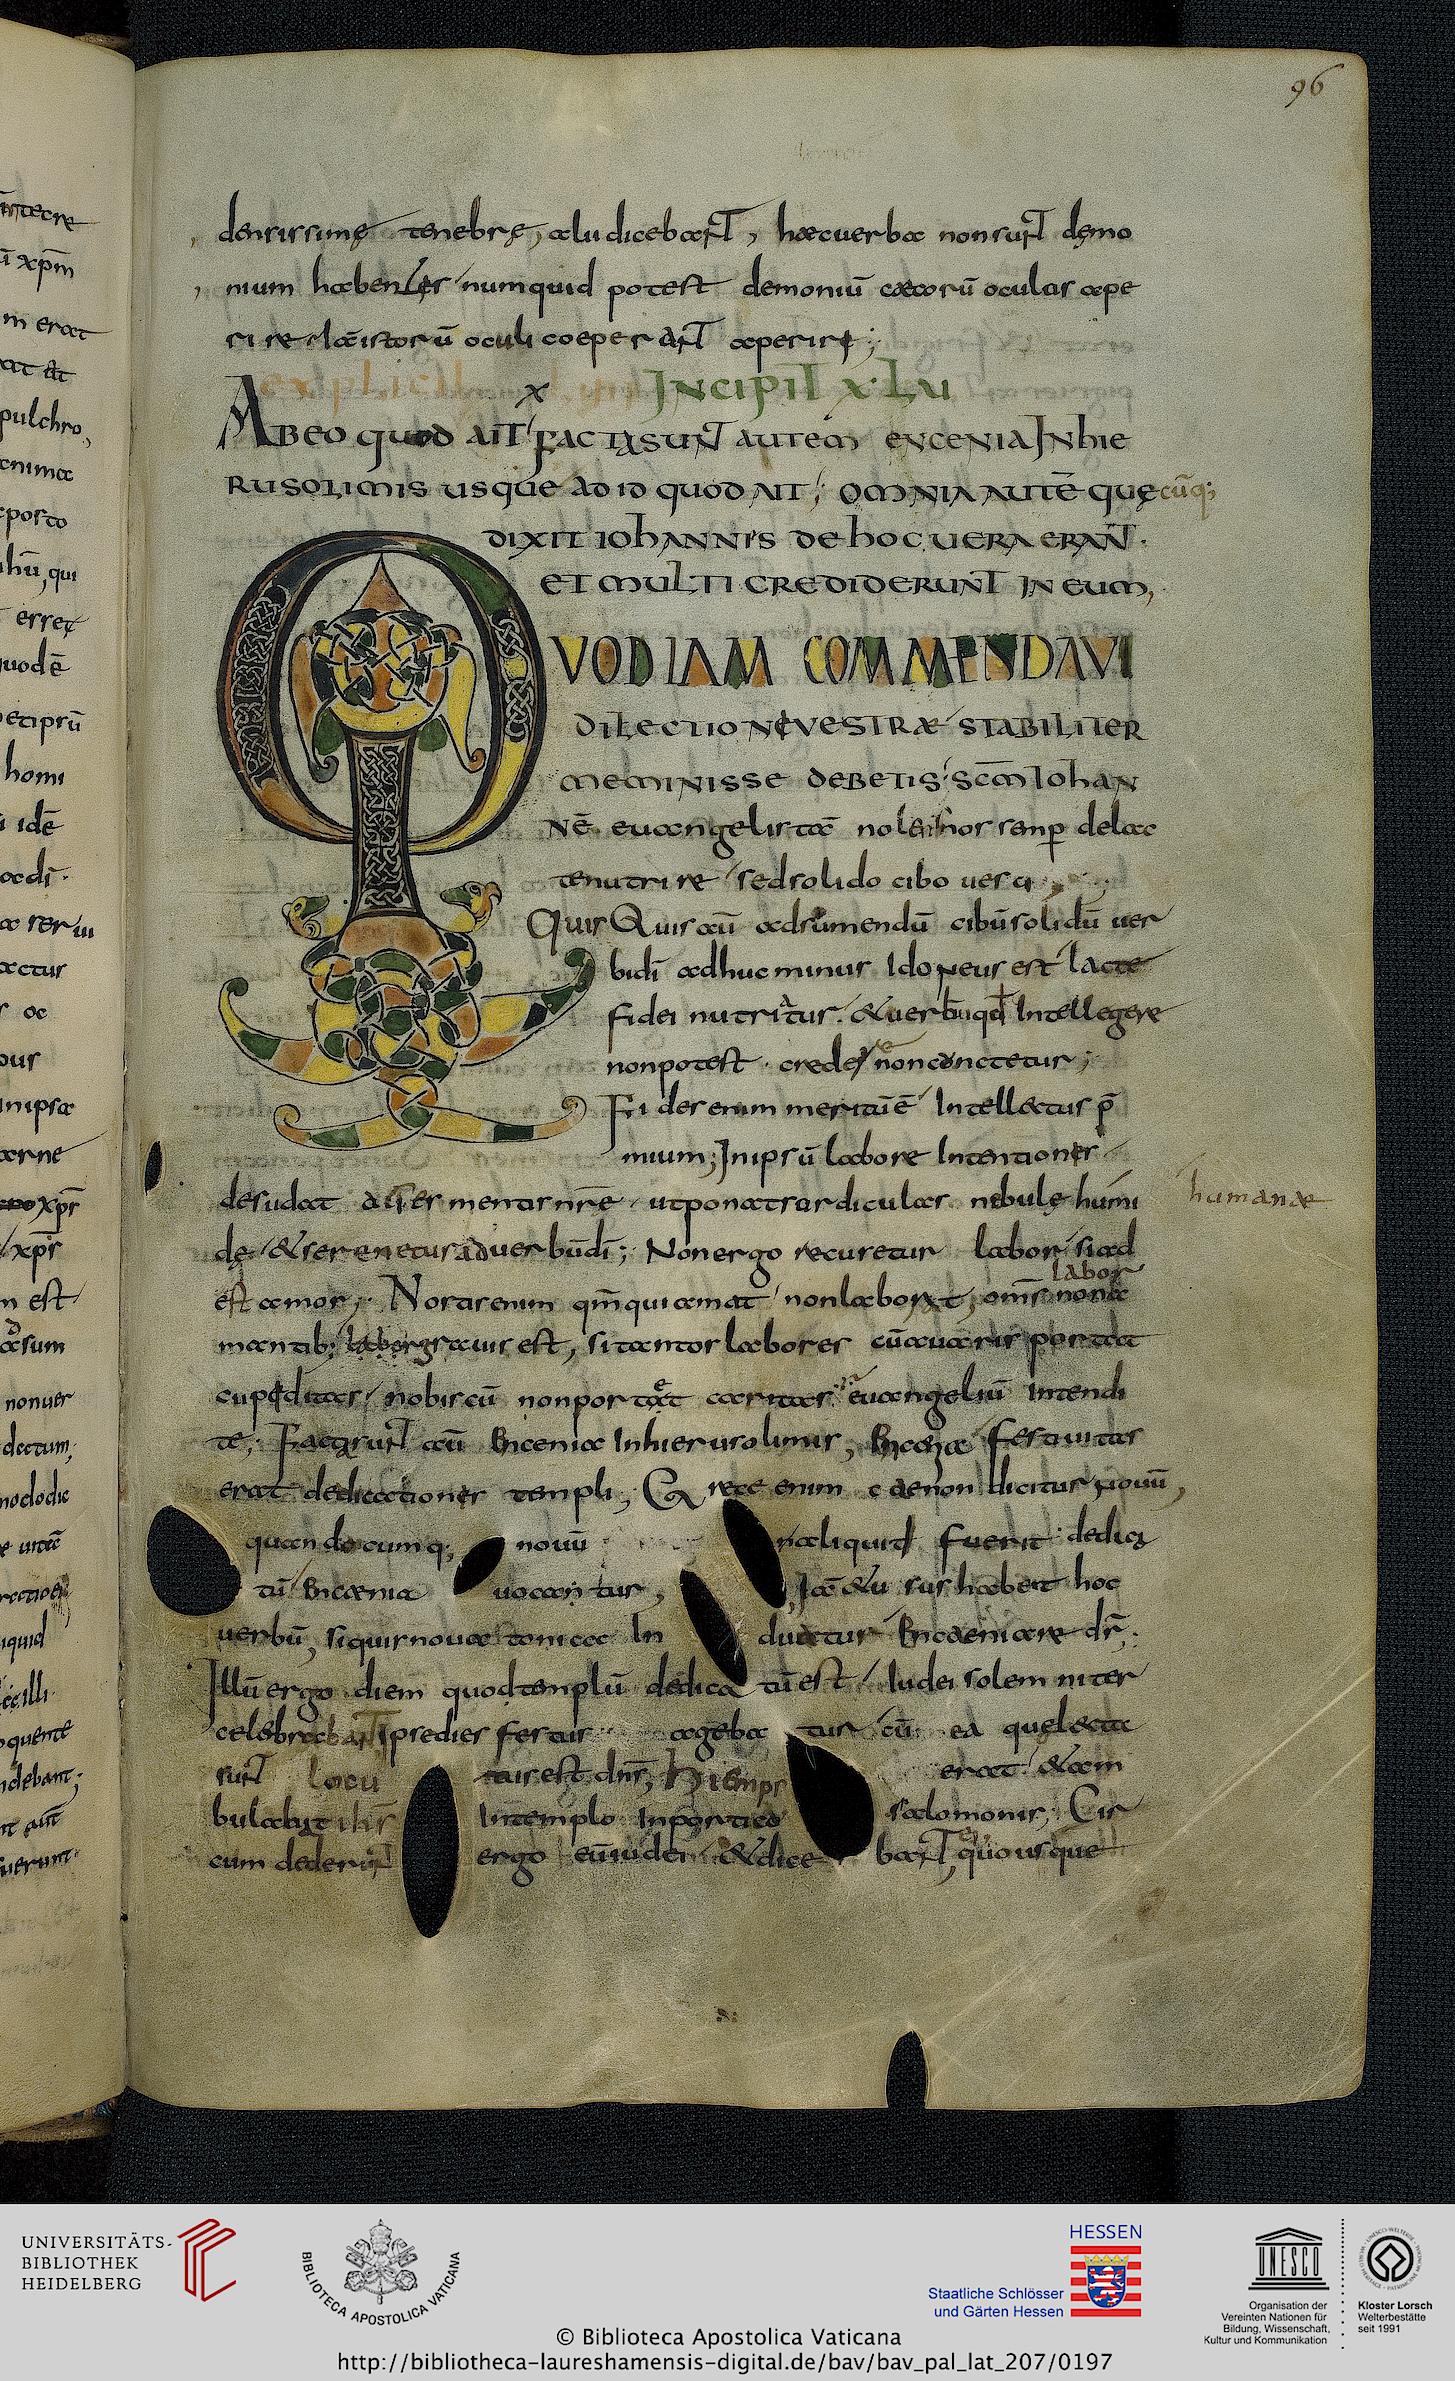 96
densissimę tenebrę, alii dicebant, hæc uerba non sunt dęmo
nium habentes numquid potest demoniū cæcorū oculos ape
rire, iā istorū oculi coeperant aperire;
explicit Incipit xLui
x
Ab eo quod ait facta sunt autem encenia In hie
rusolimis usque ad id quod ait; omnia autē quę cūq;
dixit iohannis de hoc uera erant.
et multi crediderunt in eum,
QVOD IAM COMMENDAVI
dilectioni vestræ stabiliter
meminisse debetis scm̄ Iohan
nē euangelistā nolle nos semp delac
te nutrire sed solido cibo uesci
Quis Quis aū ad sumendū cibū solidū uer
bi dī adhuc minus Idoneus est lacte
fidei nutriatur. & uerbū qd Intellegere
non potest credere non cunctetur;
Fides enim meritū ē Intellectus p̄
mium; In ipsū labore Intentionis
desudat acies mentis nr̄e ut ponat sordiculas nebulę humi
humanæ
dę & serenetur ad uerbū dī; Non ergo recusetur labor si ad
labor
est amor; Nostis enim qm̄ qui amat non laborat, omīs non a
mantib; labor grauis est, si tantos labores cū auaris portat
cupiditas nobis cū non portaet caritas. euangeliū Intendi
te; Facta sunt aū Encenia In hierusolimis, Encenia festiuitas
erat dedicationis templi, Grece enim caenon dicitur nouū,
quandocumq; nouū aliquid fuerit dedica
tū Encænia uocantur, Iā & usus habet hoc
uerbū, si quis noua tonica Induatur Encaeniare dr̄;
Illū ergo diem quo templū dedicatū est Iudei solemniter
celebrabant ipse dies festus agebatur cū ea que lecta
sunt locutus est dns, hiemps erat & am
bulabat ihs In templo In portico salomonis; Cir
cum dederunt ergo eū iudei & dicebant, quousque
UNIVERSITÄTS-
BIBLIOTHEK
HEIDELBERG
BIBLIOTECA APOSTOLICA VATICANA
HESSEN
Staatliche Schlösser
und Gärten Hessen
UNESCO
Organisation der
Vereinten Nationen für
Bildung, Wissenschaft,
Kultur und Kommunikation
Kloster Lorsch
Welterbestätte
seit 1991
© Biblioteca Apostolica Vaticana
http://bibliotheca-laureshamensis-digital.de/bav/bav_pal_lat_207/0197